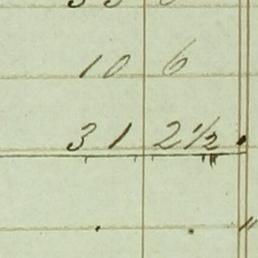 10 6
31 2½